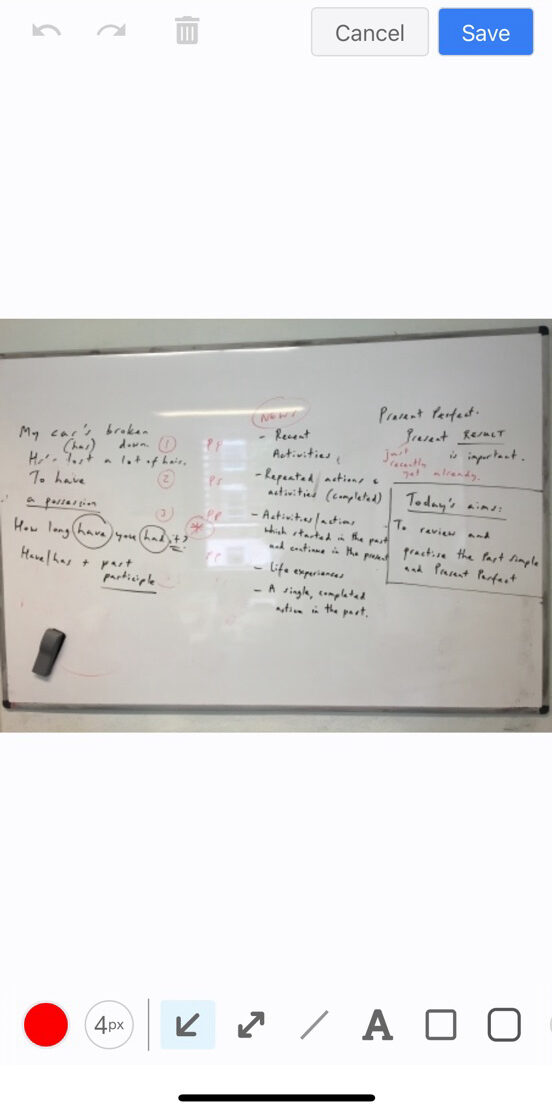 Cancel
Save
My car's broken
(has) down. ①
He's lost a lot of hair.
To have ②
a possession
③
How long have you had it?
*
Have/has + past
participle
PP
PS
PP
PP
NEWS
- Recent
Activities
- Repeated actions &
activities (completed)
- Activities/actions
which started in the past
and continue in the present
- Life experiences
- A single, completed
action in the past.
Present Perfect.
Present RESULT
is important.
just
recently
yet already.
Today's aims:
- To review and
practise the Past Simple
and Present Perfect
4px
A